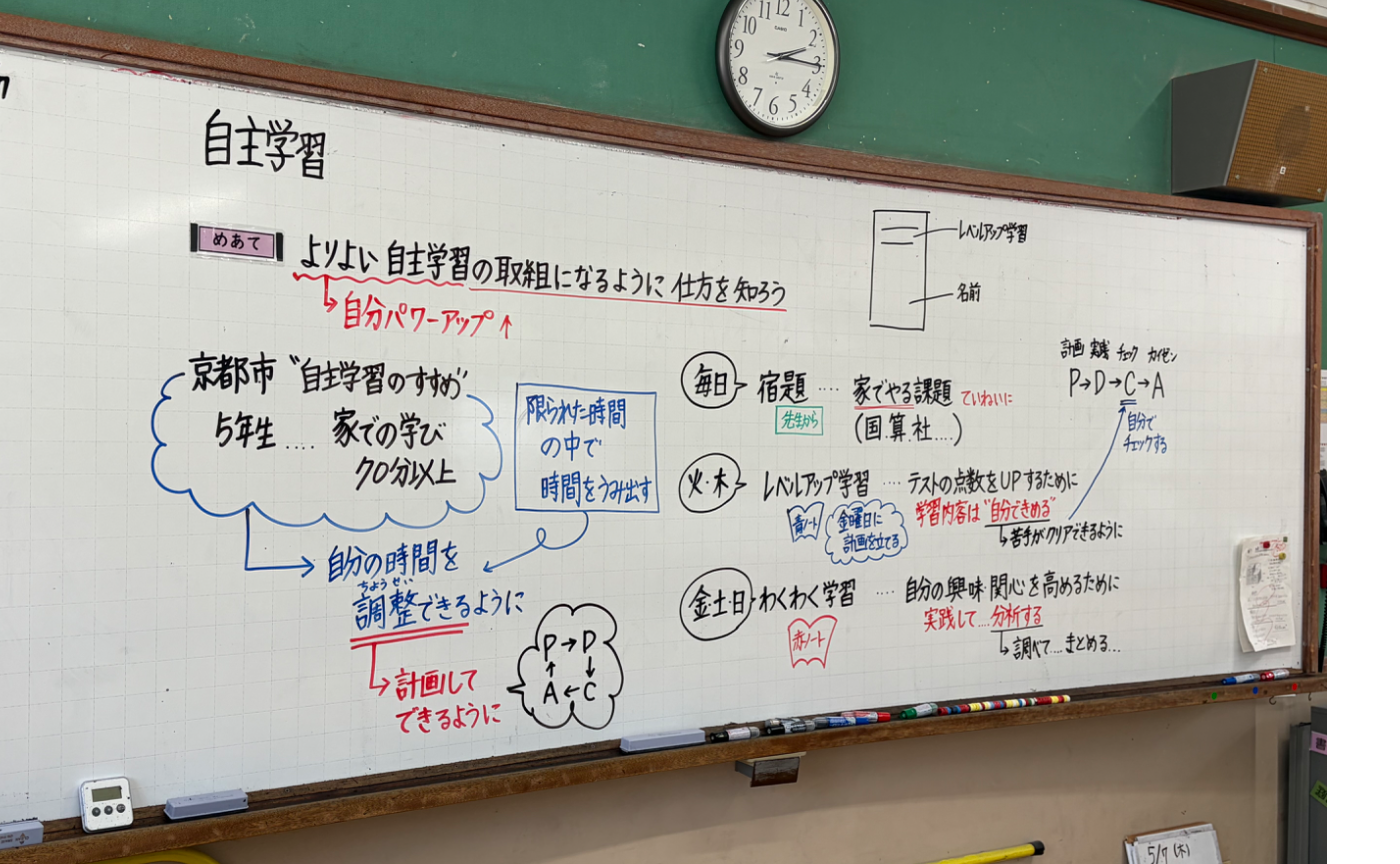 自主学習
めあて
よりよい自主学習の取組になるように仕方を知ろう
↳自分パワーアップ↑
京都市 "自主学習のすすめ"
5年生 .... 家での学び
70分以上
限られた時間
の中で
時間をうみ出す
自分の時間を
ちょうせい
調整できるように
↳計画して
できるように
P→D
↑ ↓
A←C
レベルアップ学習
名前
毎日 宿題 .... 家でやる課題 ていねいに
先生から
(国.算.社....)
計画 実践 チェック カイゼン
P→D→C→A
自分で
チェックする
火・木 レベルアップ学習 .... テストの点数をUPするために
青ノート
金曜日に
計画を立てる
学習内容は"自分できめる"
↳苦手がクリアできるように
金土日 わくわく学習 .... 自分の興味・関心を高めるために
赤ノート
実践して....分析する
↳調べて....まとめる...
CASIO
12
1
2
3
4
5
6
7
8
9
10
11
5/7(木)